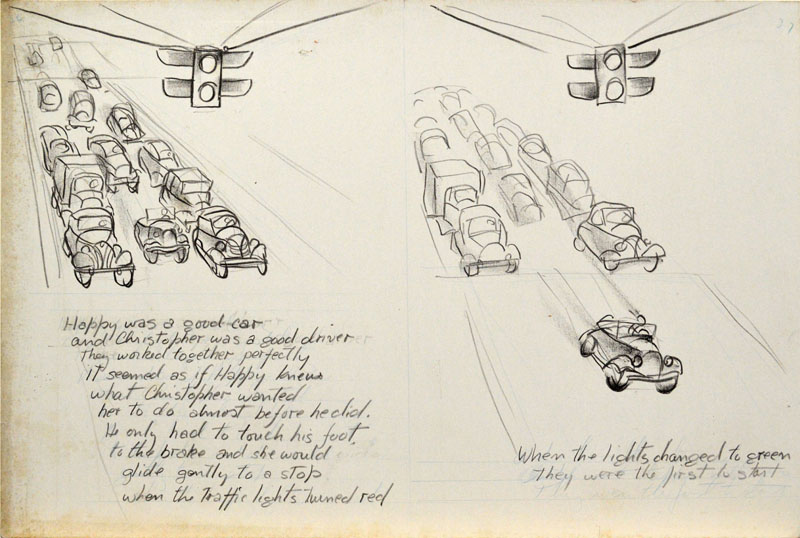 Happy was a good car
and Christopher was a good driver
They worked together perfectly
It seemed as if Happy knew
what Christopher wanted
her to do almost before he did.
He only had to touch his foot
to the brake and she would
glide gently to a stop
when the traffic lights turned red
When the lights changed to green
They were the first to start